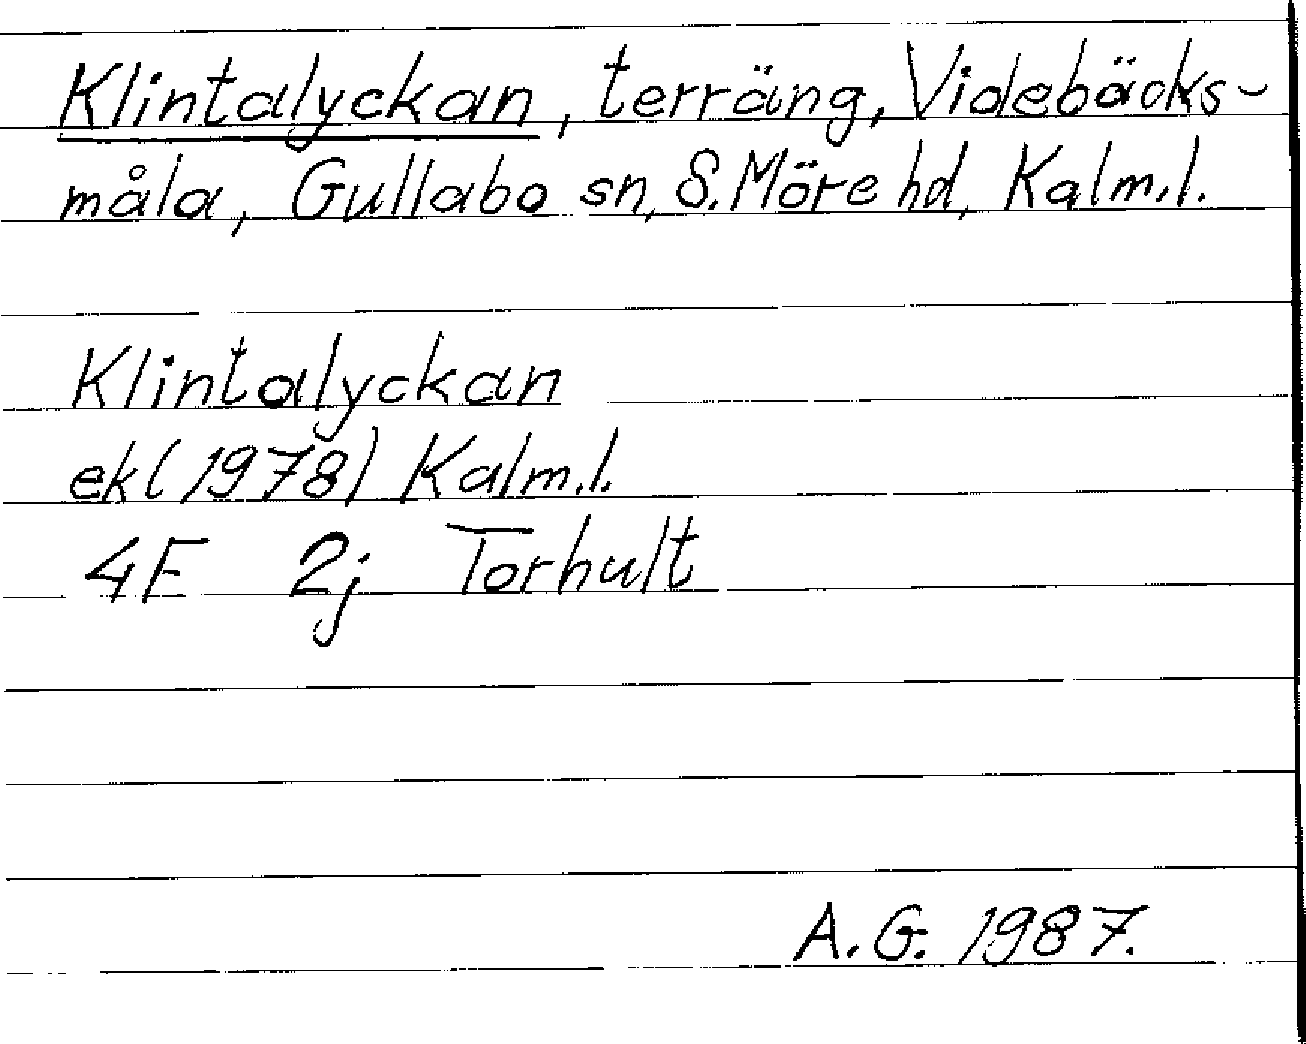 Klintalyckan, terräng, Videbäcks-
måla, Gullabo sn, S. Möre hd, Kalm.l.
Klintalyckan
ek (1978) Kalm.l.
4F 2j Torhult
A.G. 1987.